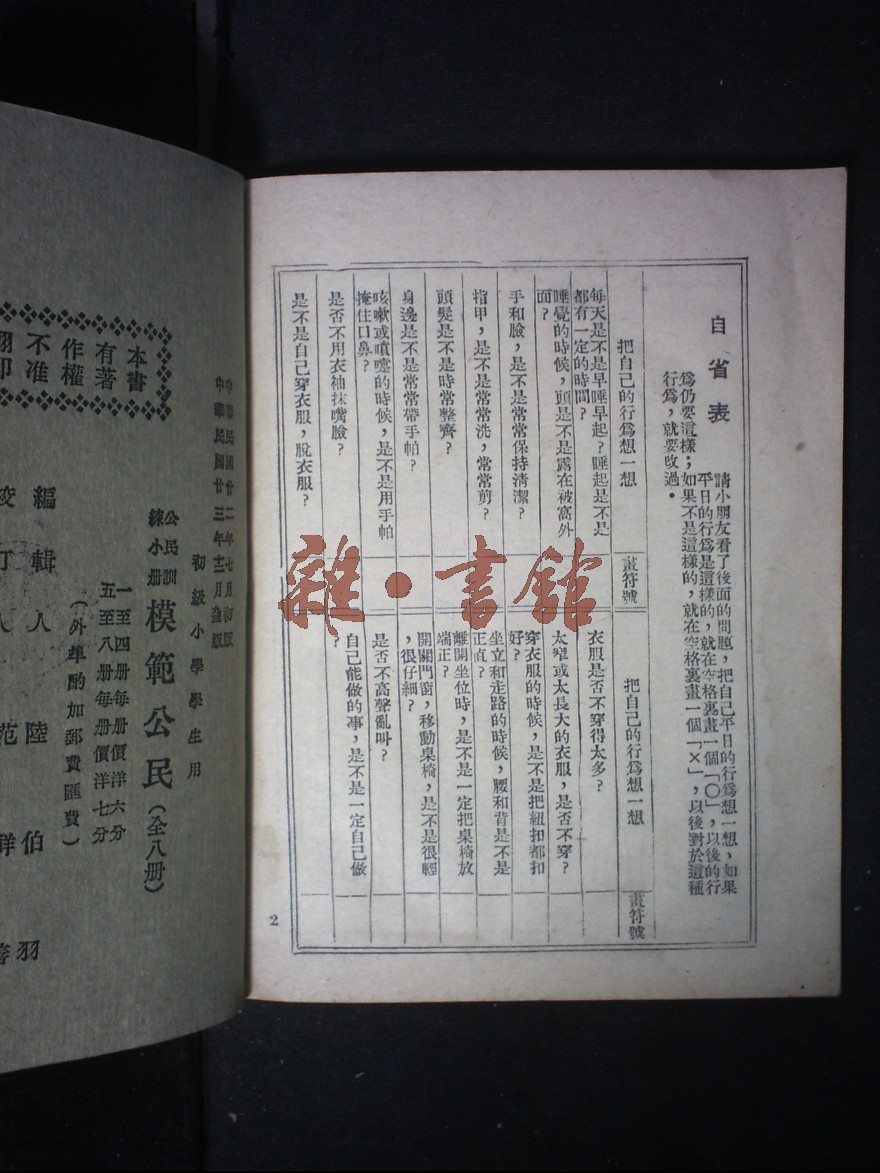 自省表
請小朋友看了後面的問題，把自己平日的行爲想一想，如果
平日的行爲是這樣的，就在空格裏畫一個「〇」，以後的行
爲仍要這樣；如果不是這樣的，就在空格裏畫一個「×」，以後對於這種
行爲，就要改過。
把自己的行爲想一想
畫符號
每天是不是早睡早起？睡起是不是
都有一定的時間？
睡覺的時候，頭是不是露在被窩外
面？
手和臉，是不是常常保持清潔？
指甲，是不是常常洗，常常剪？
頭髮是不是時常整齊？
身邊是不是常常帶手帕？
咳嗽或噴嚏的時候，是不是用手帕
掩住口鼻？
是否不用衣袖抹嘴臉？
是不是自己穿衣服，脫衣服？
把自己的行爲想一想
畫符號
衣服是否不穿得太多？
太窄或太長大的衣服，是否不穿？
穿衣服的時候，是不是把紐扣都扣
好？
坐立和走路的時候，腰和背是不是
正直？
離開坐位時，是不是一定把桌椅放
端正？
開關門窗，移動桌椅，是不是很輕
，很仔細？
是否不高聲亂叫？
自己能做的事，是不是一定自己做
？
2
雜·書館
本書
有著
作權
不准
翻印
中華民國廿二年七月初版
中華民國廿三年十二月
版
初級小學學生用
公民訓
練小册
模範公民（全八册）
一至四册每册價洋六分
五至八册每册價洋七分
（外埠酌加郵費匯費）
編輯人 陸伯羽
校訂人 范祥善